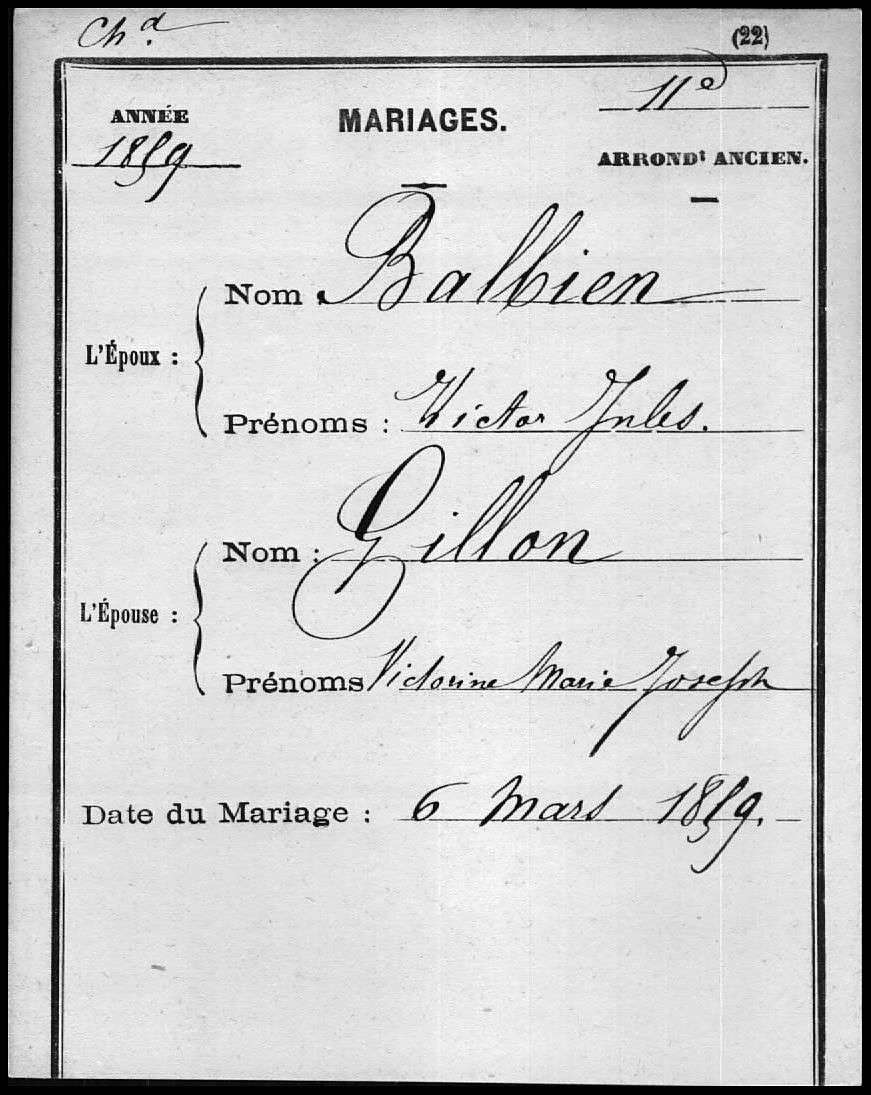 Chd.
(22)
ANNÉE
1859
MARIAGES.
11e
ARRONDt ANCIEN.
L'Époux :
Nom : Balbien
Prénoms : Victor Jules.
L'Épouse :
Nom : Gillon
Prénoms Victorine Marie Joseph
Date du Mariage : 6 Mars 1859.